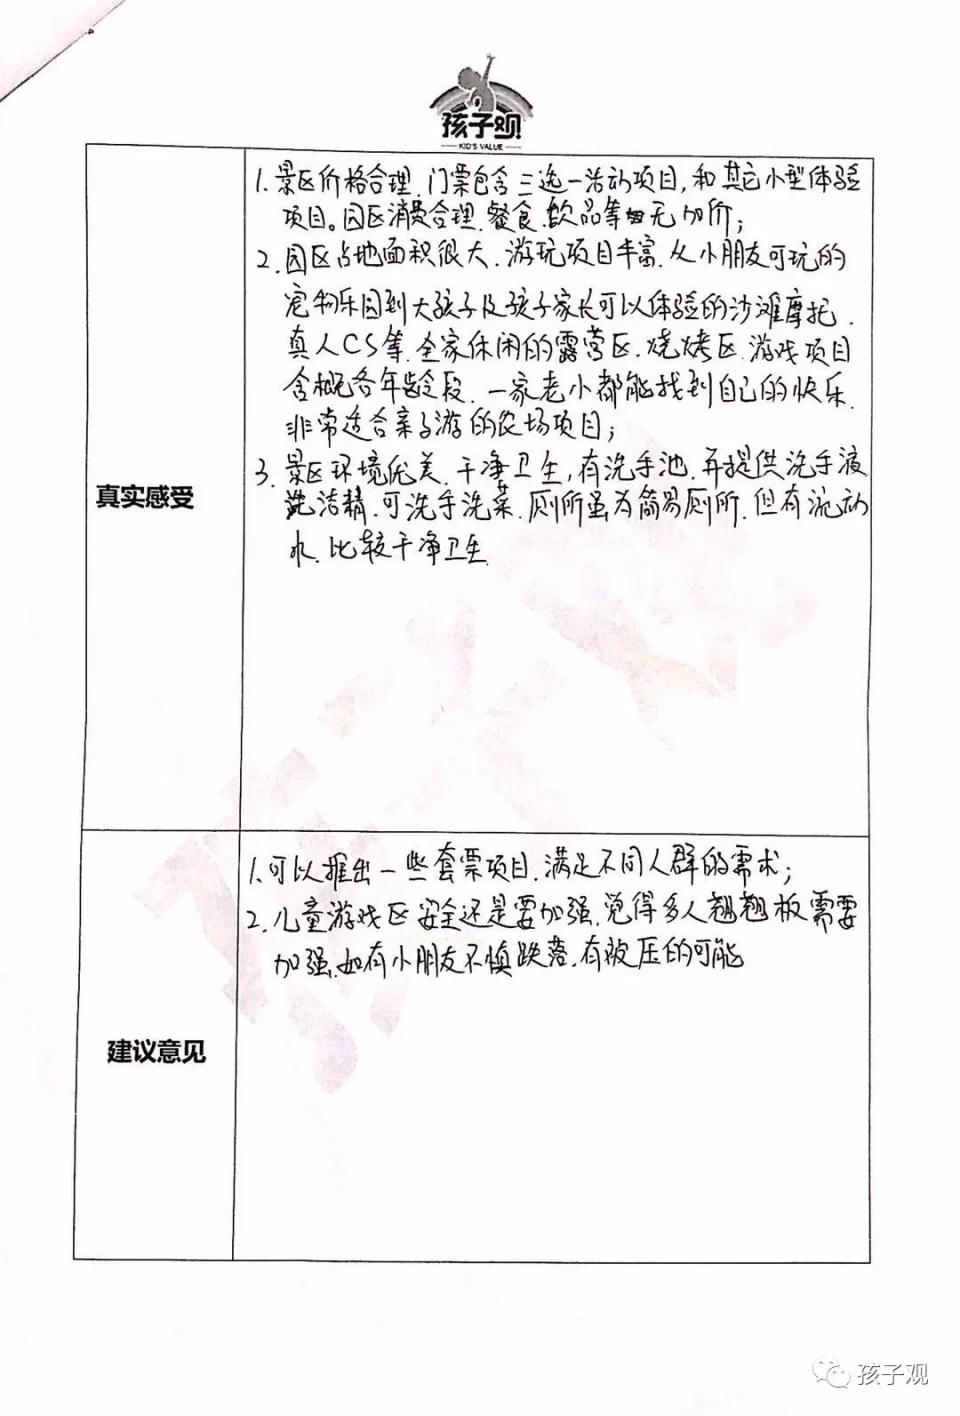 孩子观
KID'S VALUE
真实感受
1.景区价格合理.门票包含三选一活动项目,和其它小型体验
项目。园区消费合理.餐食.饮品等均无加价;
2.园区占地面积很大.游玩项目丰富.从小朋友可玩的
宠物乐园到大孩子及孩子家长可以体验的沙滩摩托.
真人CS等.全家休闲的露营区.烧烤区.游戏项目
含概各年龄段.一家老小都能找到自己的快乐.
非常适合亲子游的农场项目;
3.景区环境优美.干净卫生,有洗手池.并提供洗手液
洗洁精.可洗手洗菜.厕所虽为简易厕所.但有流动
水.比较干净卫生.
建议意见
1.可以推出一些套票项目.满足不同人群的需求;
2.儿童游戏区安全还是要加强.觉得多人翘翘板需要
加强.如有小朋友不慎跌落.有被压的可能
孩子观